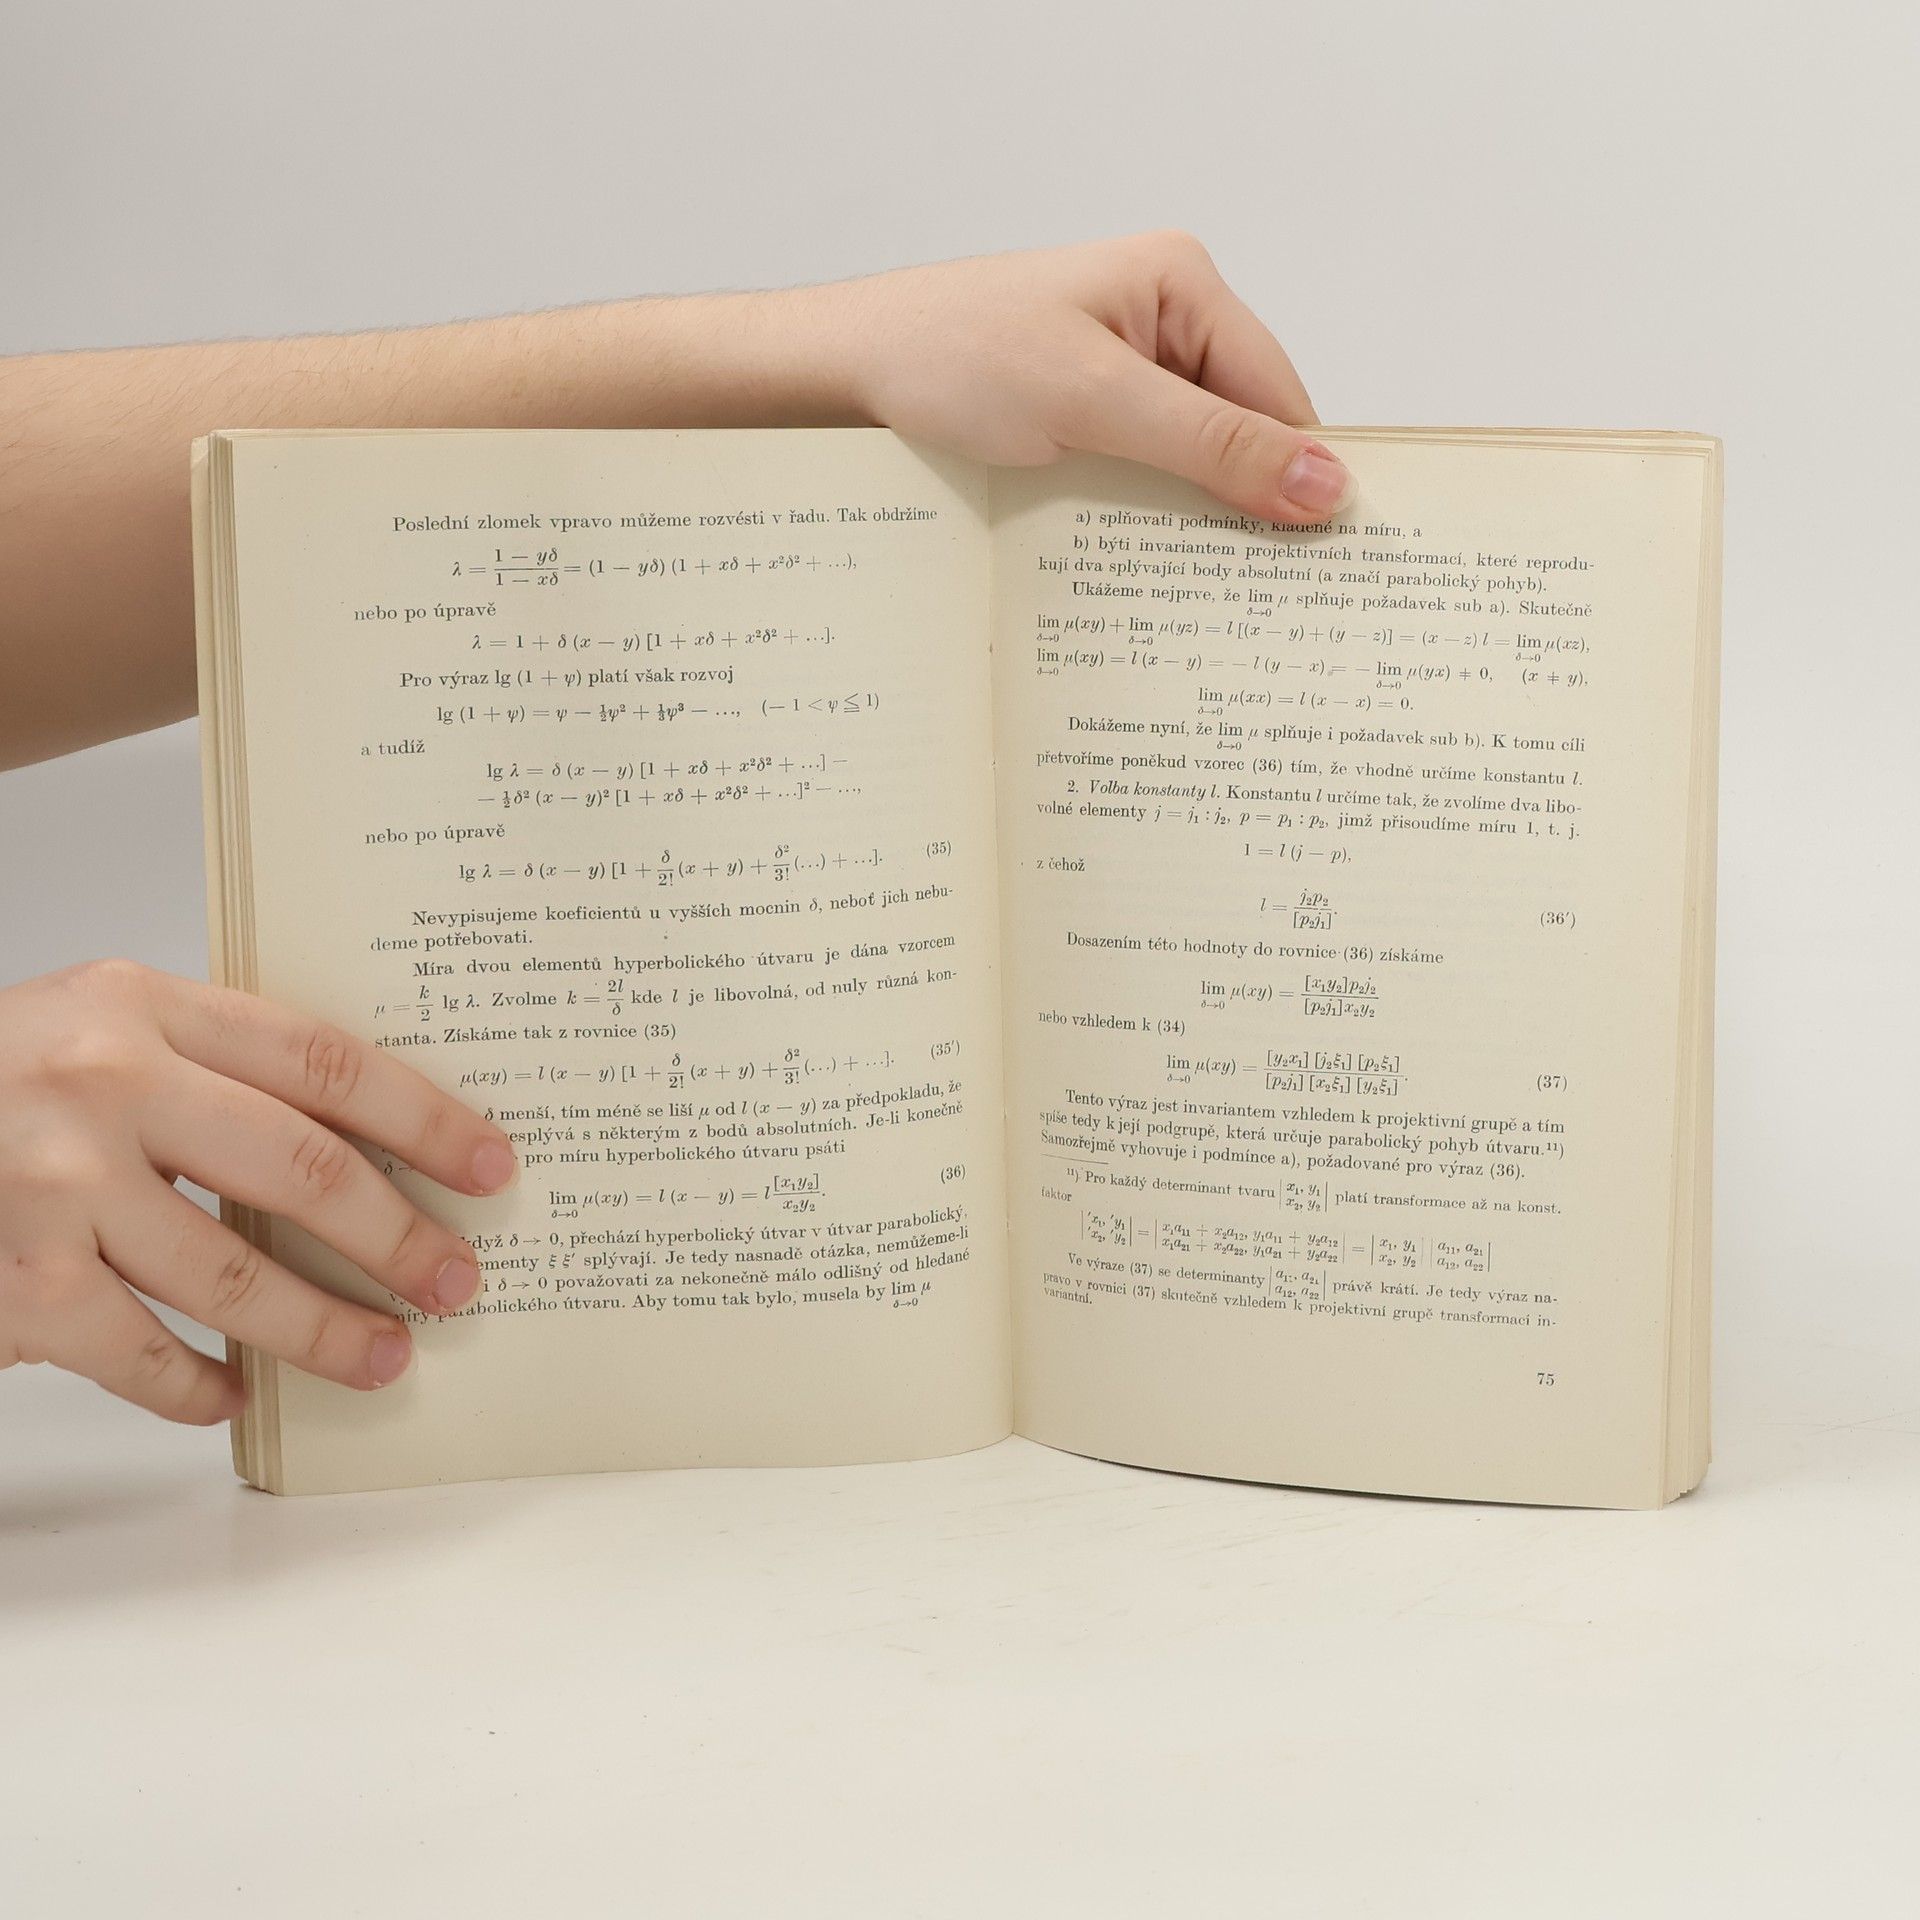 Poslední zlomek vpravo můžeme rozvésti v řadu. Tak obdržíme
λ = (1 − yδ)/(1 − xδ) = (1 − yδ) (1 + xδ + x²δ² + ...),
nebo po úpravě
λ = 1 + δ (x − y) [1 + xδ + x²δ² + ...].
Pro výraz lg (1 + ψ) platí však rozvoj
lg (1 + ψ) = ψ − ½ψ² + ⅓ψ³ − ..., (− 1 < ψ ≦ 1)
a tudíž
lg λ = δ (x − y) [1 + xδ + x²δ² + ...] −
− ½δ² (x − y)² [1 + xδ + x²δ² + ...]² − ...,
nebo po úpravě
lg λ = δ (x − y) [1 + δ/2! (x + y) + δ²/3! (...) + ...]. (35)
Nevypisujeme koeficientů u vyšších mocnin δ, neboť jich nebu-
deme potřebovati.
Míra dvou elementů hyperbolického útvaru je dána vzorcem
μ = k/2 lg λ. Zvolme k = 2l/δ kde l je libovolná, od nuly různá kon-
stanta. Získáme tak z rovnice (35)
μ(xy) = l (x − y) [1 + δ/2! (x + y) + δ²/3! (...) + ...]. (35′)
δ menší, tím méně se liší μ od l (x − y) za předpokladu, že
nesplývá s některým z bodů absolutních. Je-li konečně
δ → pro míru hyperbolického útvaru psáti
lim μ(xy) = l (x − y) = l [x₁y₂]/x₂y₂. (36)
δ→0
když δ → 0, přechází hyperbolický útvar v útvar parabolický,
elementy ξ ξ′ splývají. Je tedy nasnadě otázka, nemůžeme-li
i δ → 0 považovati za nekonečně málo odlišný od hledané
míry parabolického útvaru. Aby tomu tak bylo, musela by lim μ
δ→0
a) splňovati podmínky, kladené na míru, a
b) býti invariantem projektivních transformací, které reprodu-
kují dva splývající body absolutní (a značí parabolický pohyb).
Ukážeme nejprve, že lim μ splňuje požadavek sub a). Skutečně
δ→0
lim μ(xy) + lim μ(yz) = l [(x − y) + (y − z)] = (x − z) l = lim μ(xz),
δ→0 δ→0 δ→0
lim μ(xy) = l (x − y) = − l (y − x) = − lim μ(yx) ≠ 0, (x ≠ y),
δ→0 δ→0
lim μ(xx) = l (x − x) = 0.
δ→0
Dokážeme nyní, že lim μ splňuje i požadavek sub b). K tomu cíli
δ→0
přetvoříme poněkud vzorec (36) tím, že vhodně určíme konstantu l.
2. Volba konstanty l. Konstantu l určíme tak, že zvolíme dva libo-
volné elementy j = j₁ : j₂, p = p₁ : p₂, jimž přisoudíme míru 1, t. j.
1 = l (j − p),
z čehož
l = j₂p₂/[p₂j₁]. (36′)
Dosazením této hodnoty do rovnice (36) získáme
lim μ(xy) = [x₁y₂]p₂j₂/[p₂j₁]x₂y₂
δ→0
nebo vzhledem k (34)
lim μ(xy) = [y₂x₁] [j₂ξ₁] [p₂ξ₁]/[p₂j₁] [x₂ξ₁] [y₂ξ₁]. (37)
δ→0
Tento výraz jest invariantem vzhledem k projektivní grupě a tím
spíše tedy k její podgrupě, která určuje parabolický pohyb útvaru.¹¹)
Samozřejmě vyhovuje i podmínce a), požadované pro výraz (36).
¹¹) Pro každý determinant tvaru |x₁, y₁; x₂, y₂| platí transformace až na konst.
faktor
|′x₁, ′y₁; ′x₂, ′y₂| = |x₁a₁₁ + x₂a₁₂, y₁a₁₁ + y₂a₁₂; x₁a₂₁ + x₂a₂₂, y₁a₂₁ + y₂a₂₂| = |x₁, y₁; x₂, y₂| |a₁₁, a₂₁; a₁₂, a₂₂|
Ve výraze (37) se determinanty |a₁₁, a₂₁; a₁₂, a₂₂| právě krátí. Je tedy výraz na-
pravo v rovnici (37) skutečně vzhledem k projektivní grupě transformací in-
variantní.
75